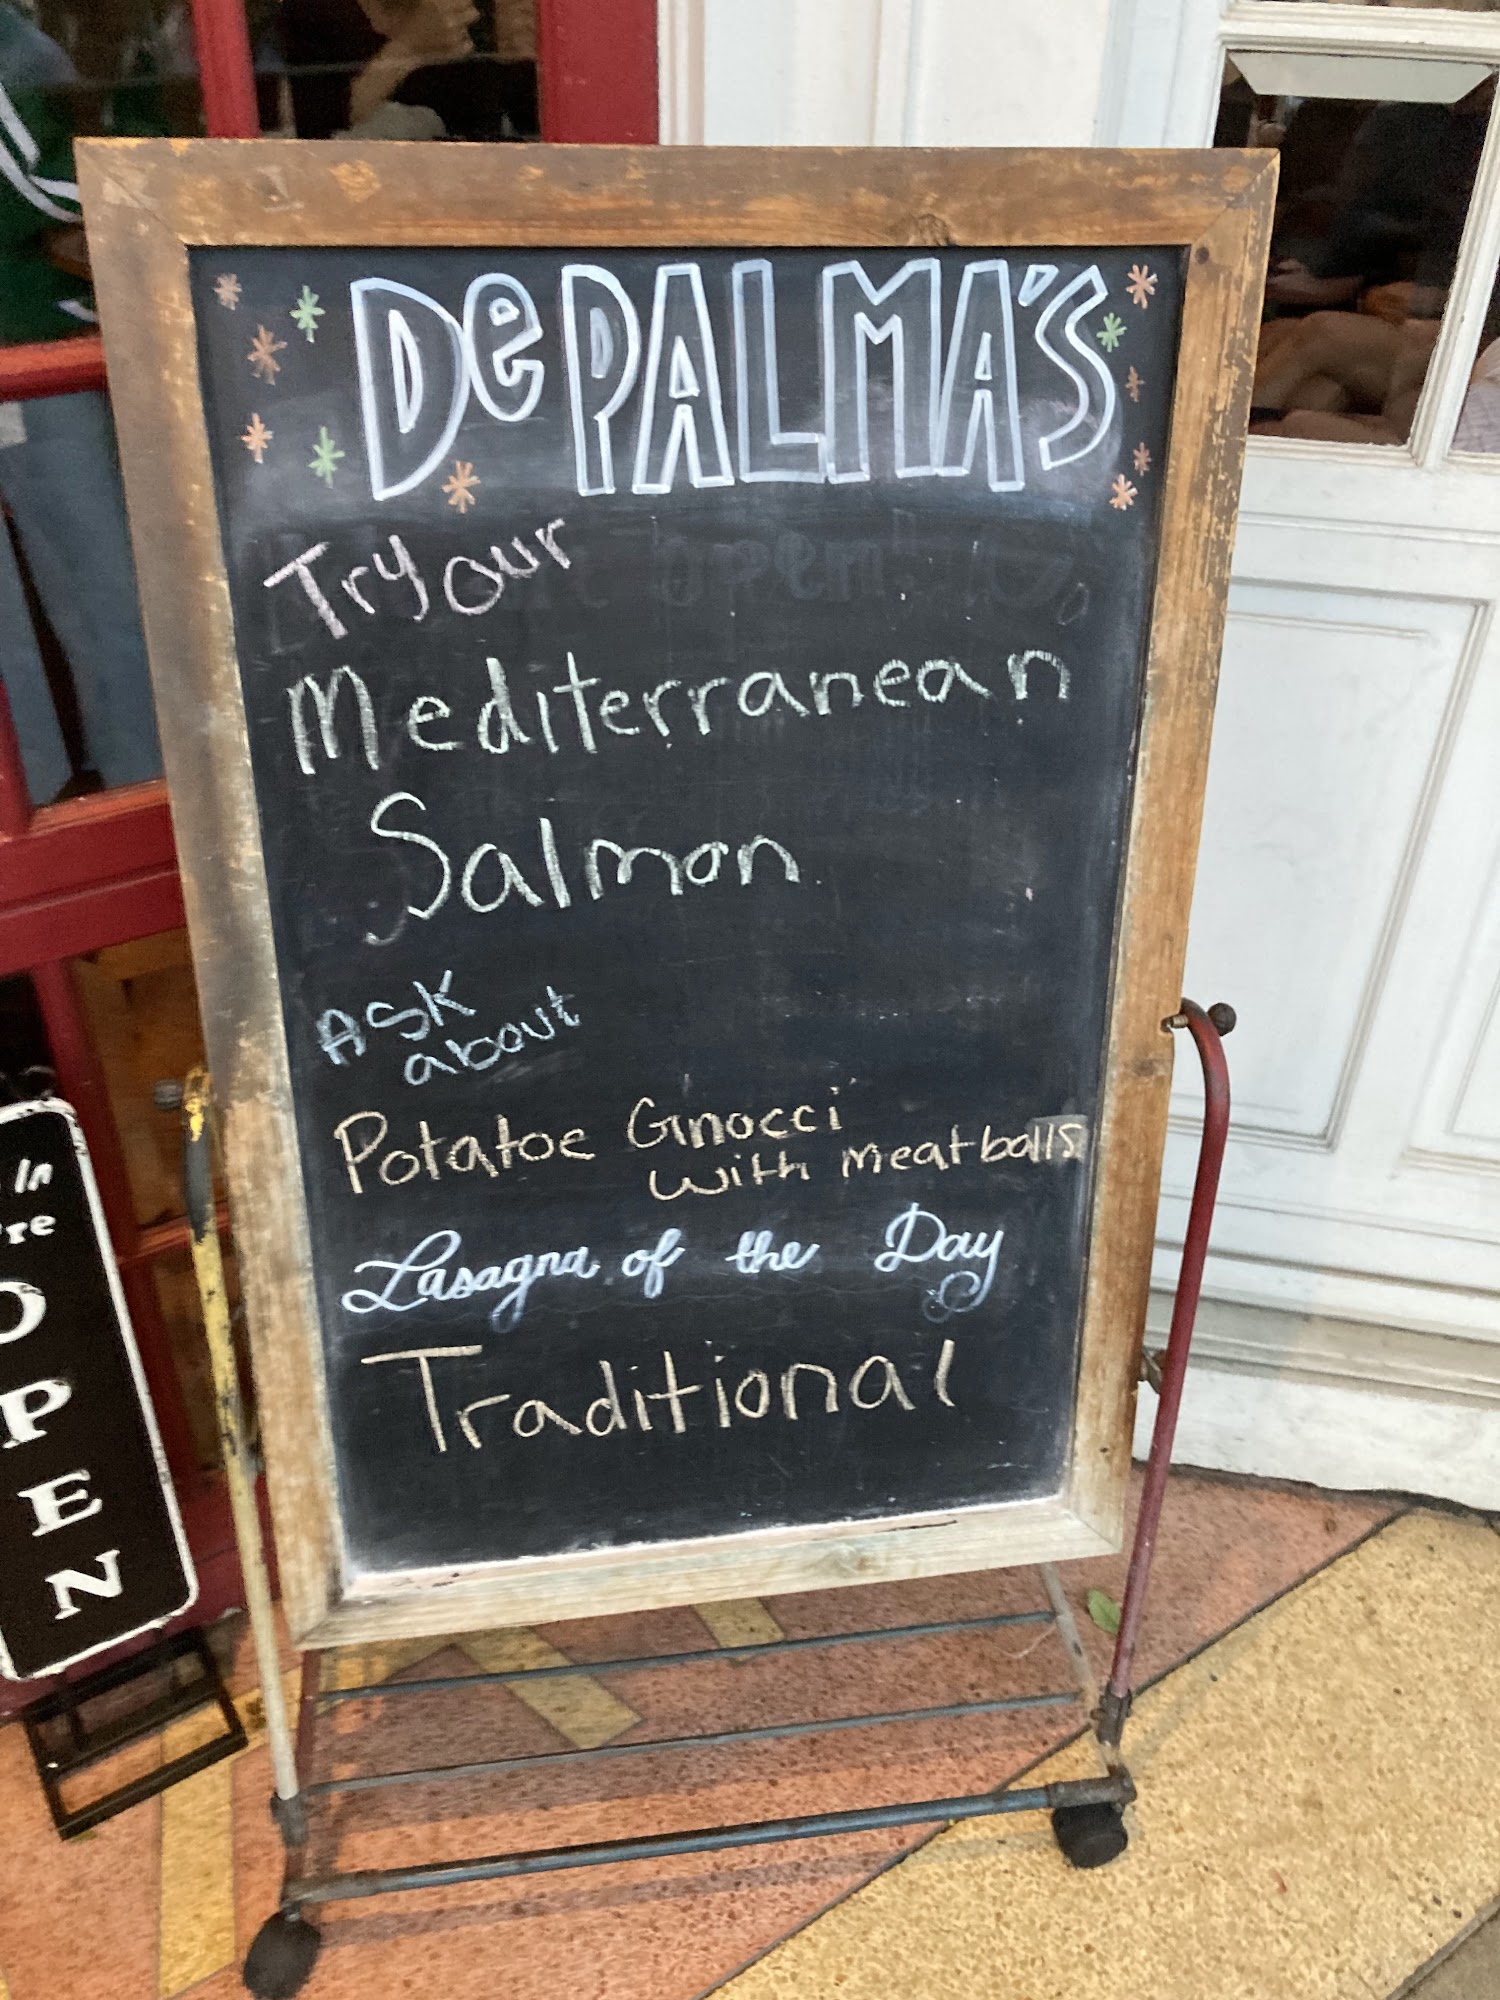 DePALMA'S
Try our
Mediterranean
Salmon
Ask
about
Potatoe Gnocci
with meatballs
Lasagna of the Day
Traditional
In
're
OPEN